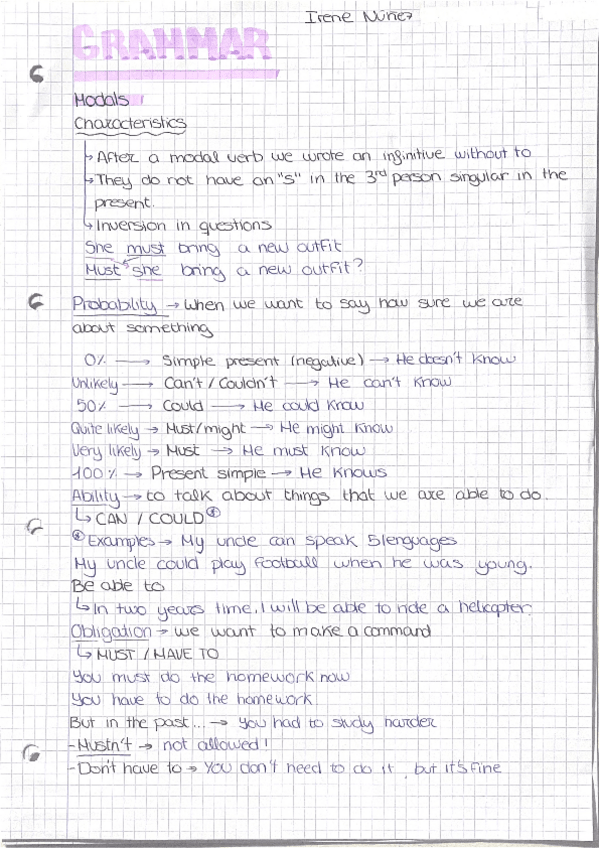 Irene Núñez
GRAMMAR
Modals
Characteristics
↳ After a modal verb we wrote an infinitive without to
↳ They do not have an "s" in the 3rd person singular in the
present.
↳ Inversion in questions
She must bring a new outfit
Must she bring a new outfit?
Probability → when we want to say how sure we are
about something
0% → Simple present (negative) → He doesn't know
Unlikely → Can't / Couldn't → He can't know
50% → Could → He could know
Quite likely → Must/might → He might know
Very likely → Must → He must know
100% → Present simple → He knows
Ability → to talk about things that we are able to do.
↳ CAN / COULD
Examples → My uncle can speak 5 lenguages
My uncle could play football when he was young.
Be able to
↳ In two years time, I will be able to ride a helicopter.
Obligation → we want to make a command
↳ MUST / HAVE TO
You must do the homework now
You have to do the homework
But in the past... → you had to study harder
- Mustn't → not allowed!
- Don't have to → you don't need to do it, but it's fine